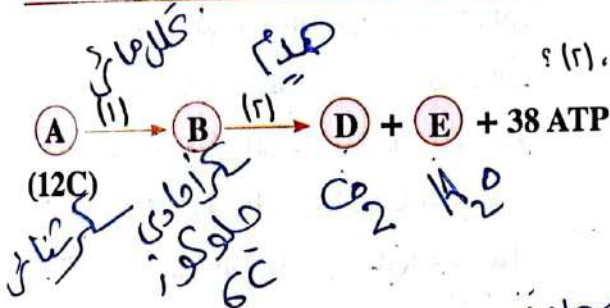 تحلل مائي
هدم
، (٢) ؟
A (١) B (٢) D + E + 38 ATP
(12C)
سكر ثنائي
سكر أحادي
جلوكوز
6C
CO2 H2O